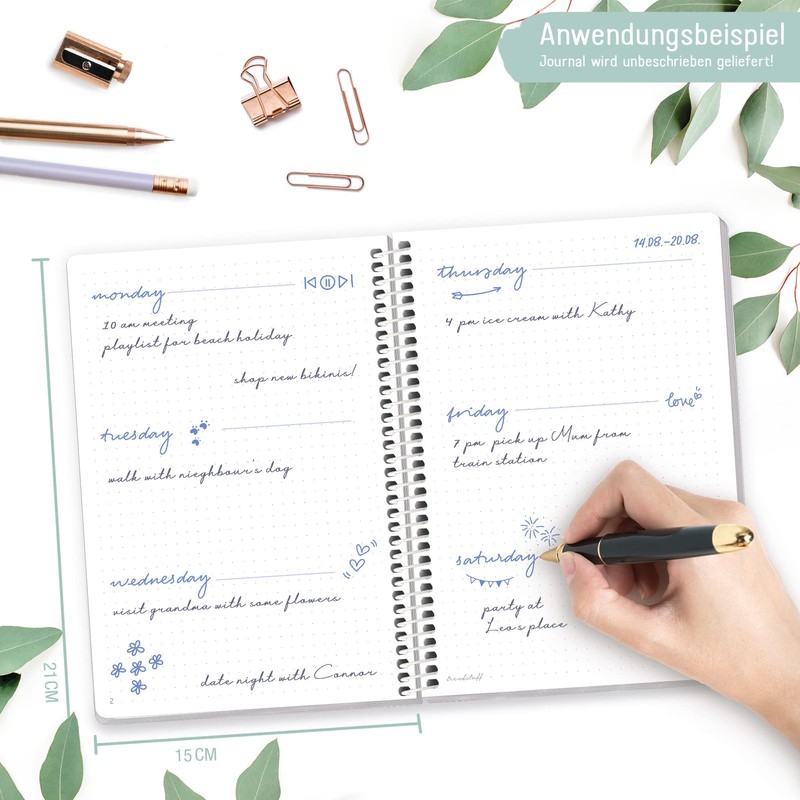 Anwendungsbeispiel
Journal wird unbeschrieben geliefert!
monday
10 am meeting
playlist for beach holiday
shop new bikinis!
tuesday
walk with nieghbour's dog
wednesday
visit grandma with some flowers
date night with Connor
2
14.08.–20.08.
thursday
4 pm ice cream with Kathy
friday
love
7 pm pick up Mum from
train station
saturday
party at
Leo's place
trendstuff
21 CM
15 CM